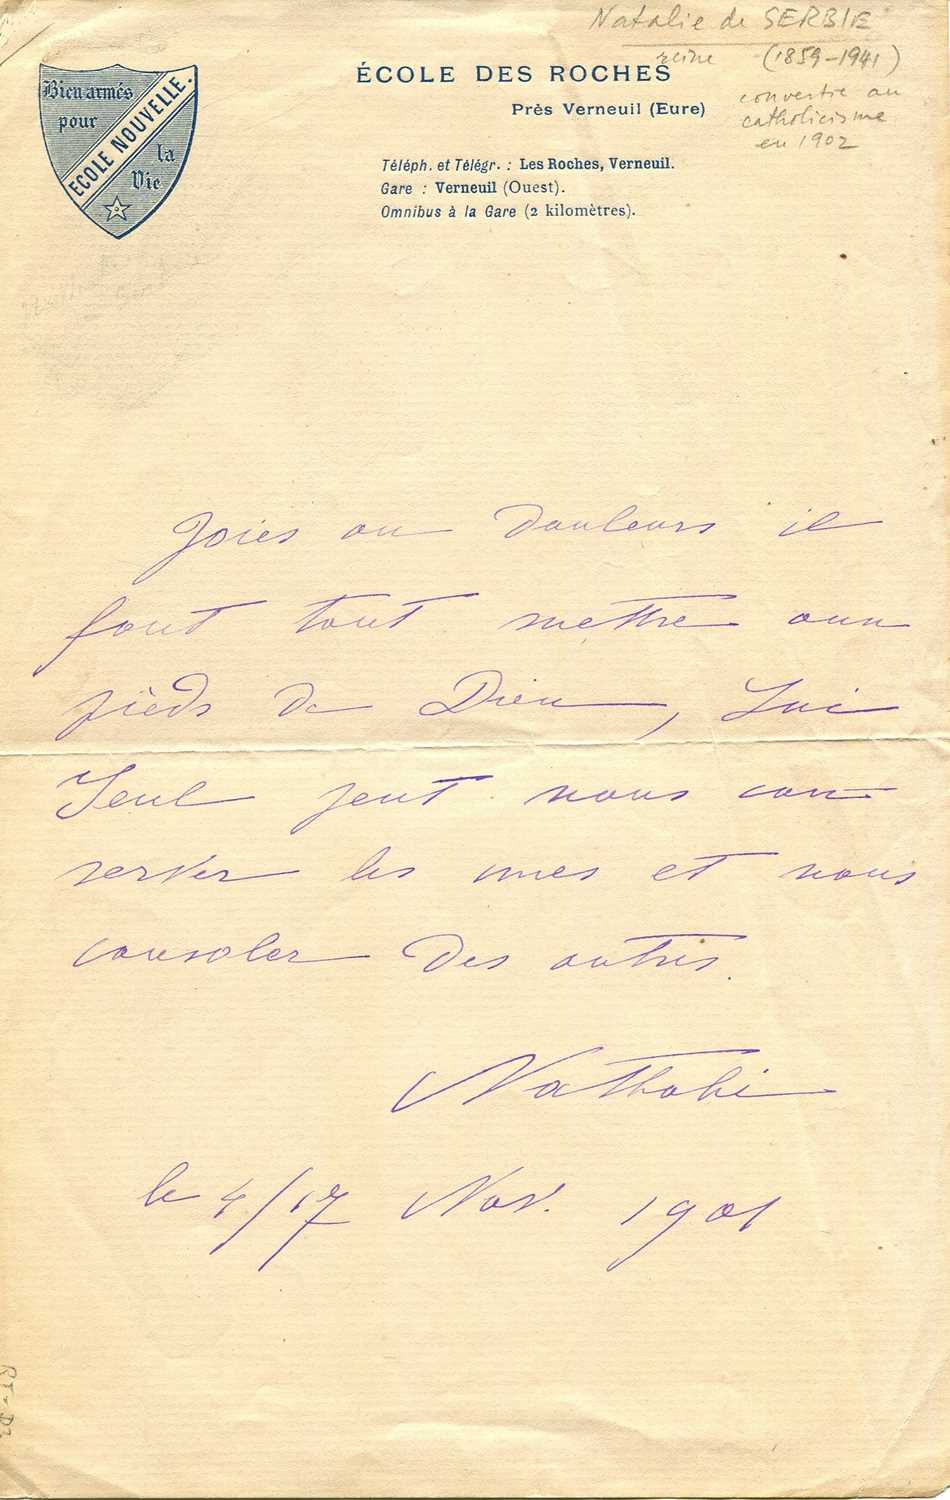 Natalie de SERBIE
reine (1859-1941)
convertie au
catholicisme
en 1902
Bien armés
pour
ECOLE NOUVELLE.
la
Vie
ÉCOLE DES ROCHES
Près Verneuil (Eure)
Téléph. et Télégr. : Les Roches, Verneuil.
Gare : Verneuil (Ouest).
Omnibus à la Gare (2 kilomètres).
Joies ou douleurs il
faut tout mettre aux
pieds de Dieu, Lui
Seul peut nous con-
server les unes et nous
consoler des autres.
Nathalie
le 4/17 Nov. 1901